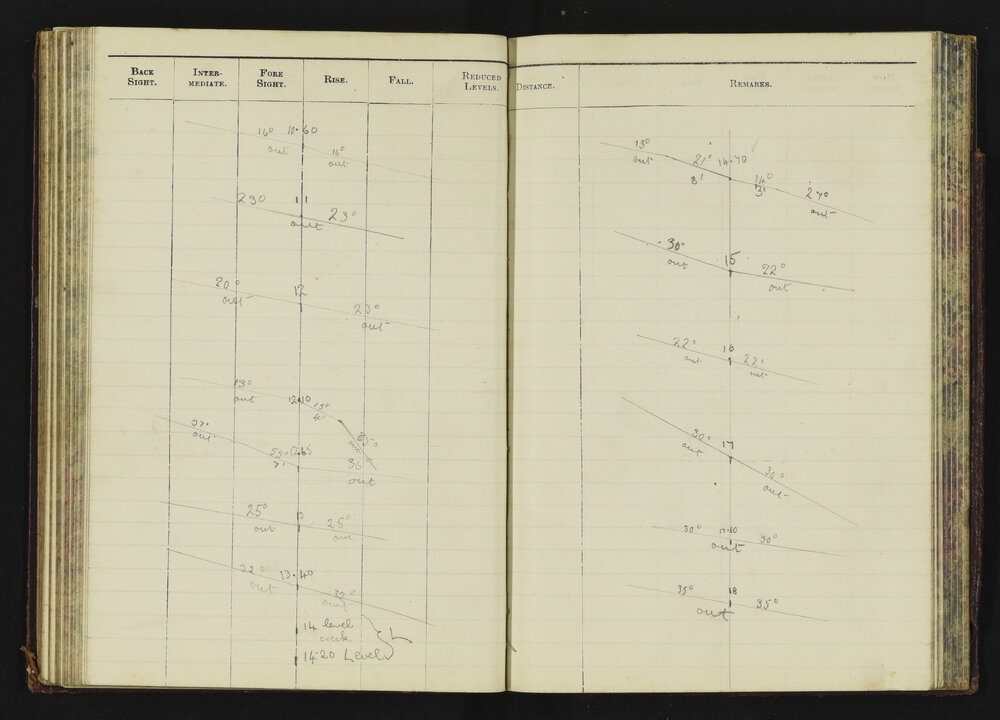 BACK SIGHT. INTER-MEDIATE. FORE SIGHT. RISE. FALL. REDUCED LEVELS.
16° 10·60
out 16°
out
23° 11 23°
out
20° 12
out 20°
out
13°
out 12·10 15°
4'
out
out 36
out
25° 13 25°
out out
32° 13·40
out 32°
out
14 level
creek
14·20 Level
DISTANCE. REMARKS.
13° 21° 14·70
out 8' 14° 27°
3' out
30° 15 22°
out out
22° 16 22°
out out
30° 17
out 30°
out
30° 17·40 30°
out
35° 18 35°
out